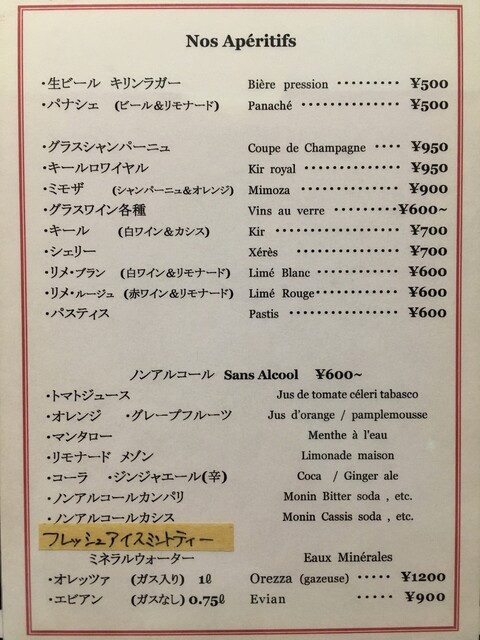 Nos Apéritifs
・生ビール キリンラガー Bière pression ········· ¥500
・パナシェ (ビール&リモナード) Panaché ·············· ¥500
・グラスシャンパーニュ Coupe de Champagne ···· ¥950
・キールロワイヤル Kir royal ·············· ¥950
・ミモザ (シャンパーニュ&オレンジ) Mimoza ·············· ¥900
・グラスワイン各種 Vins au verre ·········¥600~
・キール (白ワイン&カシス) Kir ·················· ¥700
・シェリー Xérès ··············· ¥700
・リメ・ブラン (白ワイン&リモナード) Limé Blanc ············ ¥600
・リメ・ルージュ (赤ワイン&リモナード) Limé Rouge············ ¥600
・パスティス Pastis ················ ¥600
ノンアルコール Sans Alcool ¥600~
・トマトジュース Jus de tomate céleri tabasco
・オレンジ ・グレープフルーツ Jus d'orange / pamplemousse
・マンタロー Menthe à l'eau
・リモナード メゾン Limonade maison
・コーラ ・ジンジャエール(辛) Coca / Ginger ale
・ノンアルコールカンパリ Monin Bitter soda , etc.
・ノンアルコールカシス Monin Cassis soda , etc.
フレッシュアイスミントティー
ミネラルウォーター Eaux Minérales
・オレッツァ (ガス入り) 1ℓ Orezza (gazeuse) ····· ¥1200
・エビアン (ガスなし) 0.75ℓ Evian ·········· ¥900